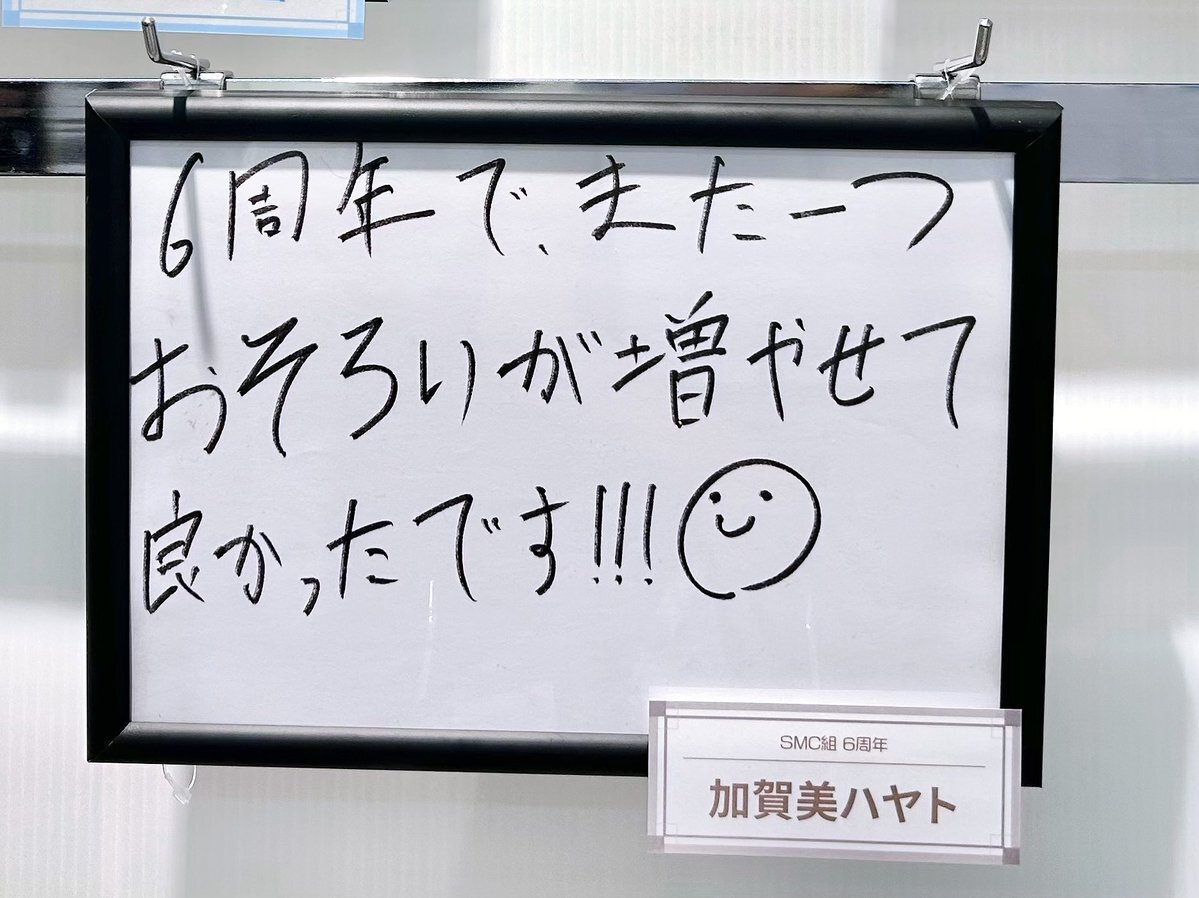 6周年で、また一つ
おそろいが増やせて
良かったです!!!
SMC組 6周年
加賀美ハヤト